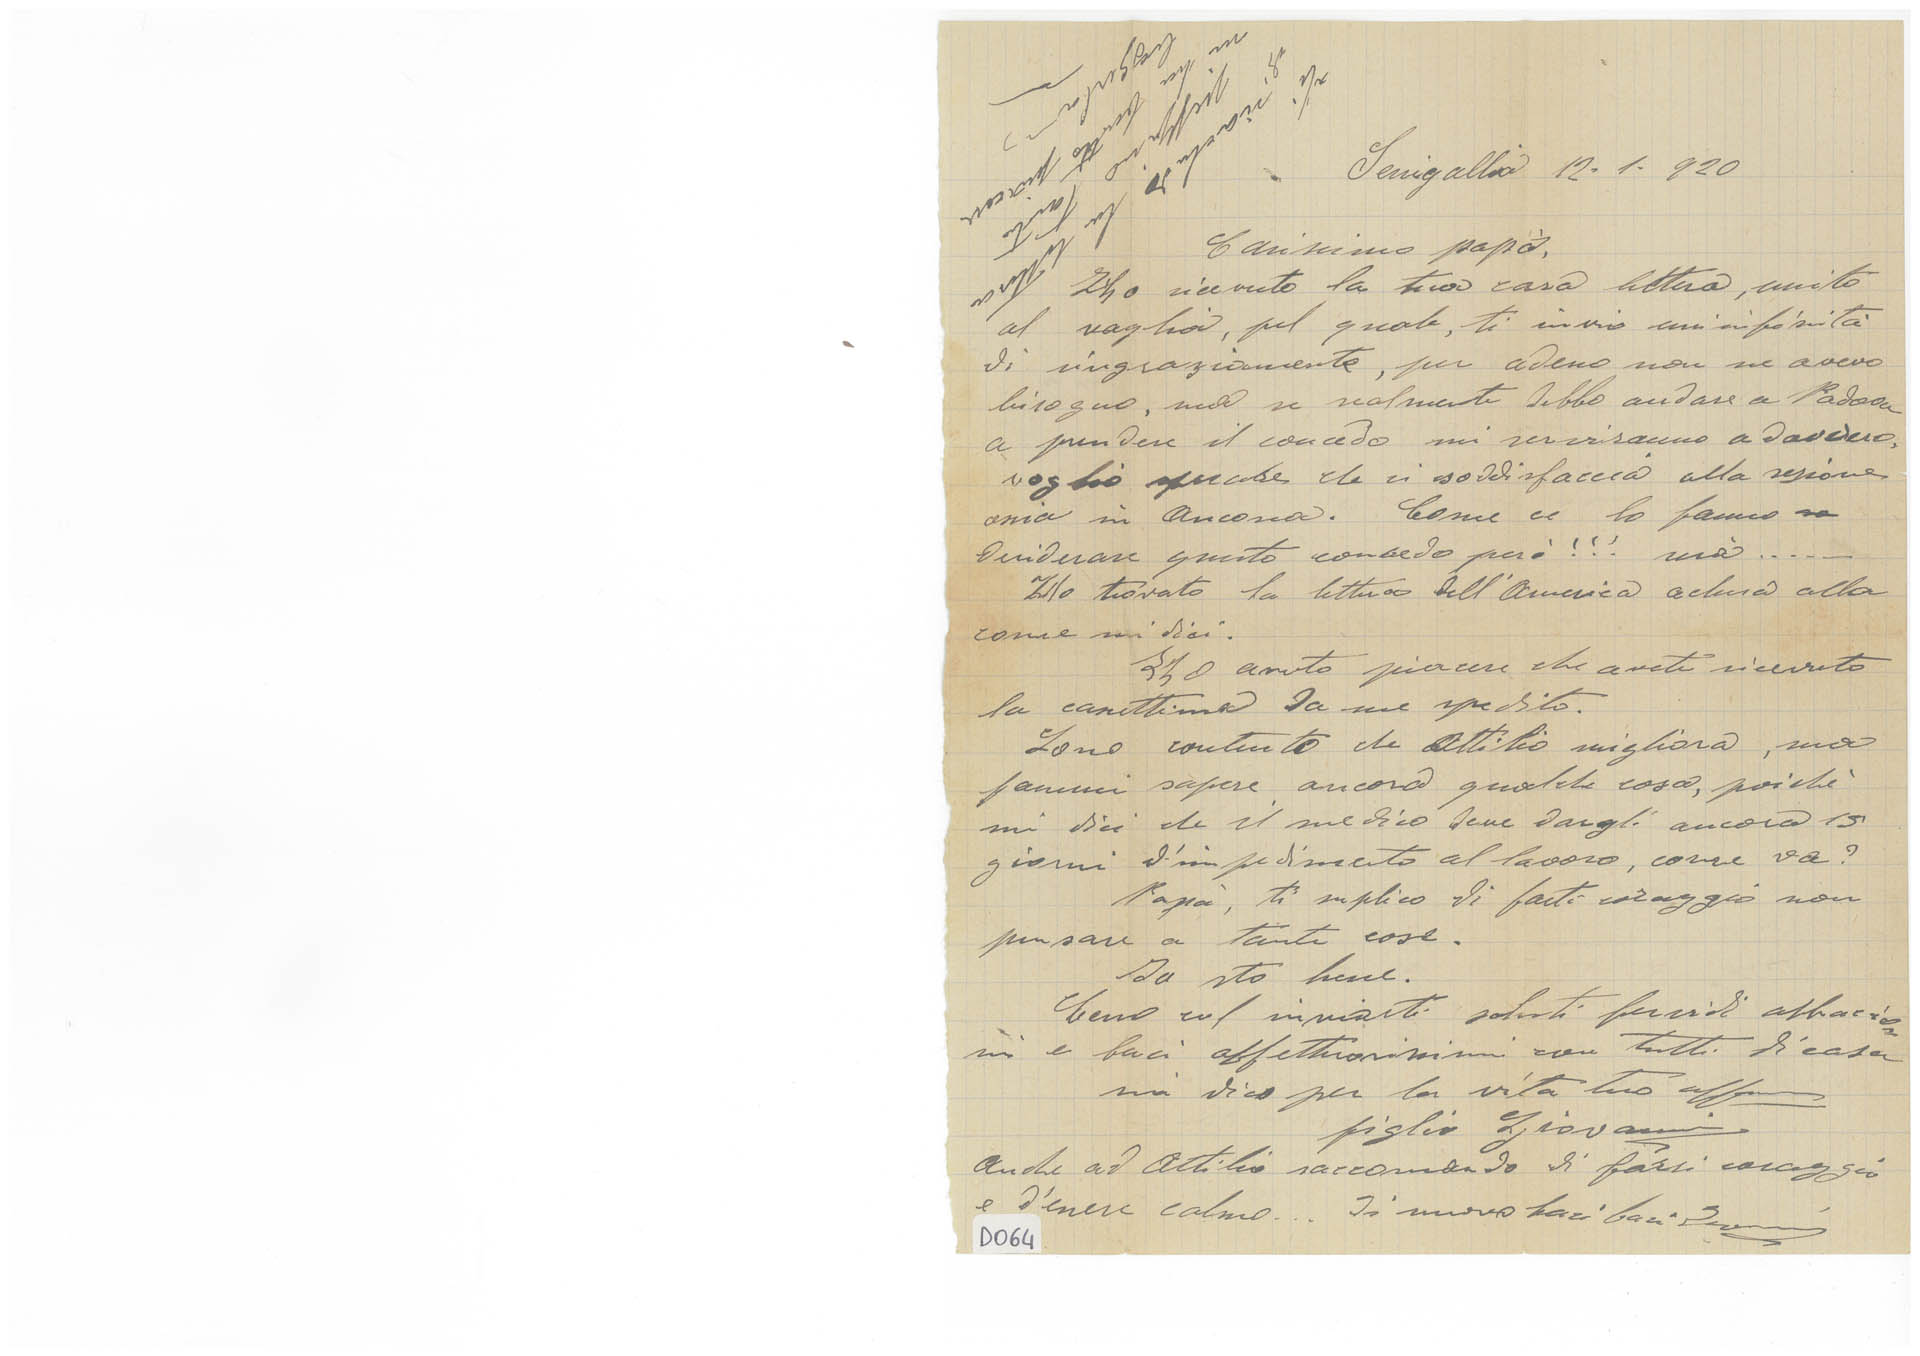 Senigallia 12-1-920
Carissimo papà,
Ho ricevuto la tua cara lettera, unito
al vaglia, pel quale, ti invio un'infinità
di ringraziamente, per adesso non ne avevo
bisogno, ma se realmente debbo andare a Padova
a prendere il concedo mi serviranno a davvero,
voglio sperare che ci soddisfaccia alla
in Ancona. Come ce lo fanno
desiderare questo concedo però!!! mà.....
Ho trovato la lettera dell'America aclusa alla
come mi dici.
Ho avuto piacere che avete ricevuto
la casettina da me spedito.
Sono contento che Attilio migliora, ma
fammi sapere ancora qualche cosa, poichè
mi dici che il medico deve dargli ancora 15
giorni d'impedimento al lavoro, come va?
Papà, ti suplico di farti coraggio non
pensare a tante cose.
Io sto bene.
Cesso col inviarti saluti fervidi abbraccis
si e baci affettuosissimi con tutti di casa
mi dico per la vita tuo aff
figlio Giovanni
Anche ad Attilio raccomando di farsi coraggio
e d'essere calmo... di nuovo baci baci
di
ricevuto la lettera
tanto
mi ha fatto piacere
leggerla
D064